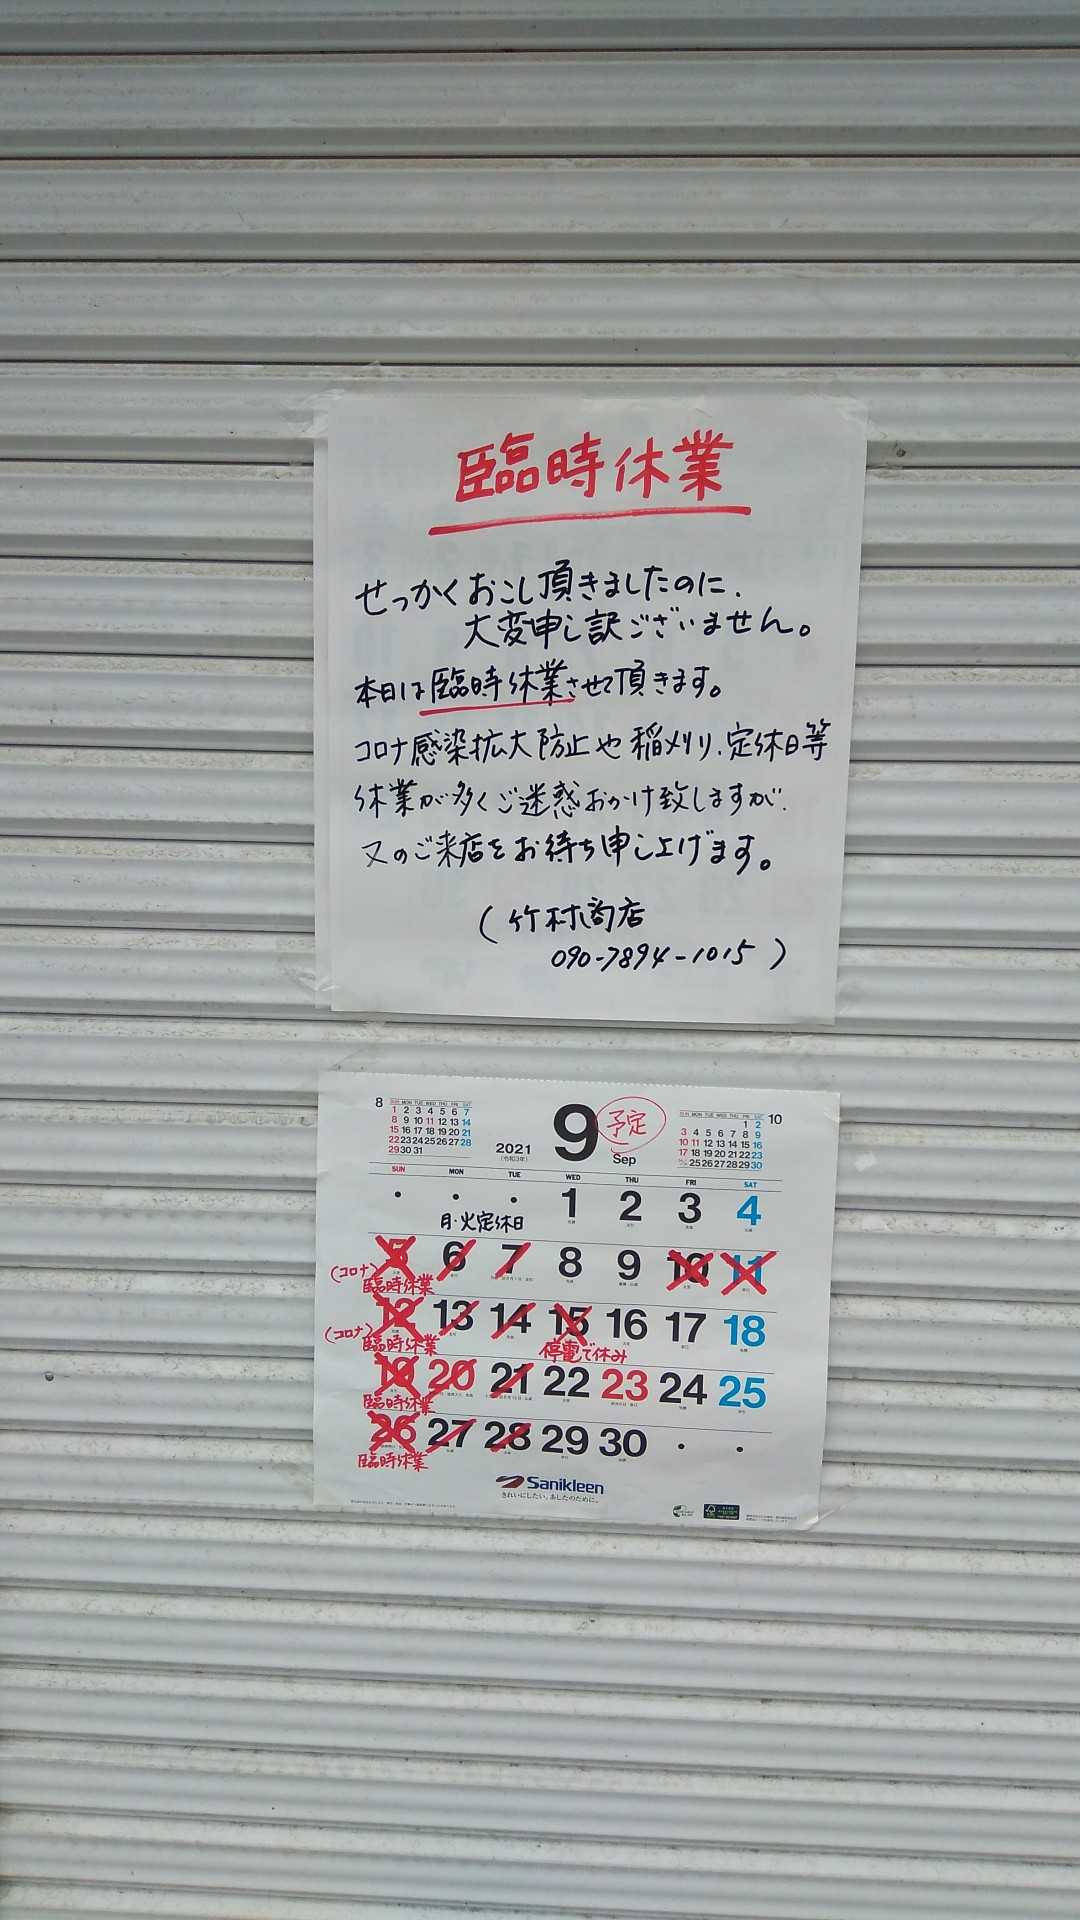 臨時休業
せっかくおこし頂きましたのに、
大変申し訳ございません。
本日は臨時休業させて頂きます。
コロナ感染拡大防止や稲刈り、定休日等
休業が多くご迷惑おかけ致しますが、
又のご来店をお待ち申し上げます。
(竹村商店
090-7894-1015)
8
SUN MON TUE WED THU FRI SAT
1 2 3 4 5 6 7
8 9 10 11 12 13 14
15 16 17 18 19 20 21
22 23 24 25 26 27 28
29 30 31
2021
(令和3年)
9
予定
Sep
10
SUN MON TUE WED THU FRI SAT
1 2
3 4 5 6 7 8 9
10 11 12 13 14 15 16
17 18 19 20 21 22 23
25 26 27 28 29 30
SUN MON TUE WED THU FRI SAT
1 2 3 4
月・火定休日
5 6 7 8 9 10 11
(コロナ)
臨時休業
12 13 14 15 16 17 18
(コロナ)
臨時休業
停電で休み
19 20 21 22 23 24 25
臨時休業
26 27 28 29 30
臨時休業
Sanikleen
きれいにしたい。あしたのために。